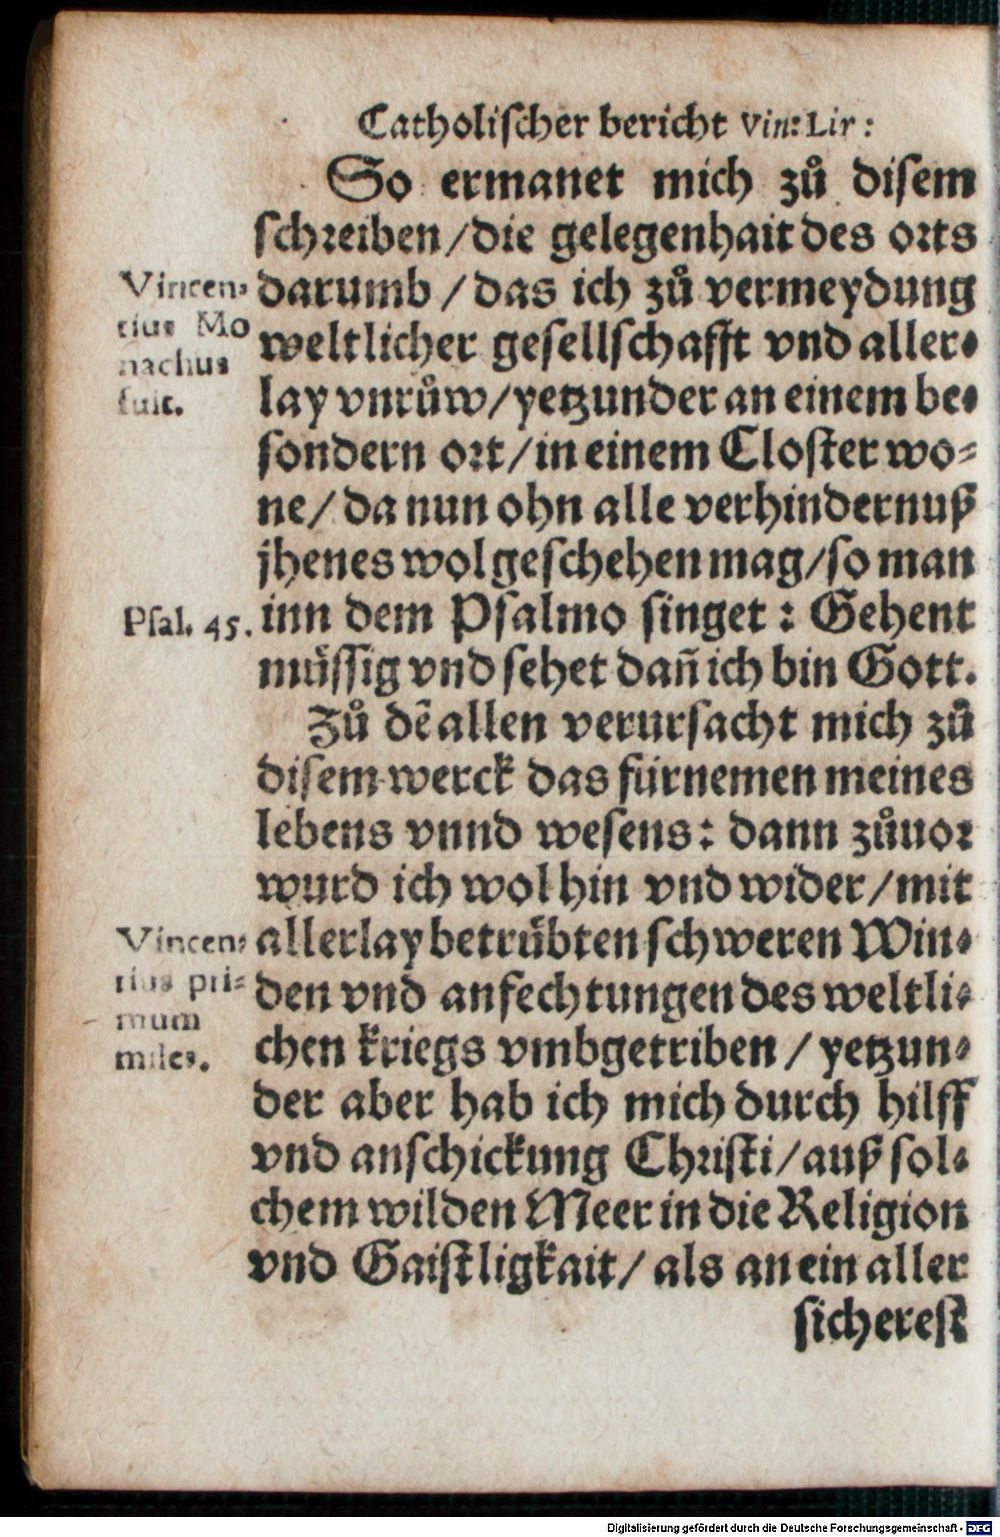 Catholischer bericht Vin: Lir:
So ermanet mich zů disem
schreiben / die gelegenhait des orts
darumb / das ich zů vermeydung
weltlicher gesellschafft vnd aller-
lay vnrůw / yetzunder an einem be-
sondern ort / in einem Closter wo-
ne / da nun ohn alle verhindernuß
jhenes wol geschehen mag / so man
inn dem Psalmo singet : Gehent
müssig vnd sehet dañ ich bin Gott.
Vincen-
tius Mo
nachus
fuit.
Psal. 45.
Zů dẽ allen verursacht mich zů
disem werck das fürnemen meines
lebens vnnd wesens : dann zůuor
wurd ich wol hin vnd wider / mit
allerlay betrübten schweren Win-
den vnd anfechtungen des weltli-
chen kriegs vmbgetriben / yetzun-
der aber hab ich mich durch hilff
vnd anschickung Christi / auß sol-
chem wilden Meer in die Religion
vnd Gaistligkait / als an ein aller
Vincen-
tius pri-
mum
miles.
sicherest
Digitalisierung gefördert durch die Deutsche Forschungsgemeinschaft - DFG